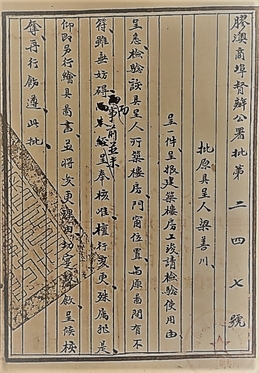 膠澳商埠督辦公署批第二四七號
批原具呈人梁善川
呈一件呈報建築樓房工竣請檢驗使用由
呈悉檢驗該具呈人所築樓房門窗位置與原圖間有不
符雖無妨碍而未經呈奉核准擅行變更殊屬非是
仰即另行繪具圖書並將變更理由切實聲敘呈候核
奪再行飭遵此批